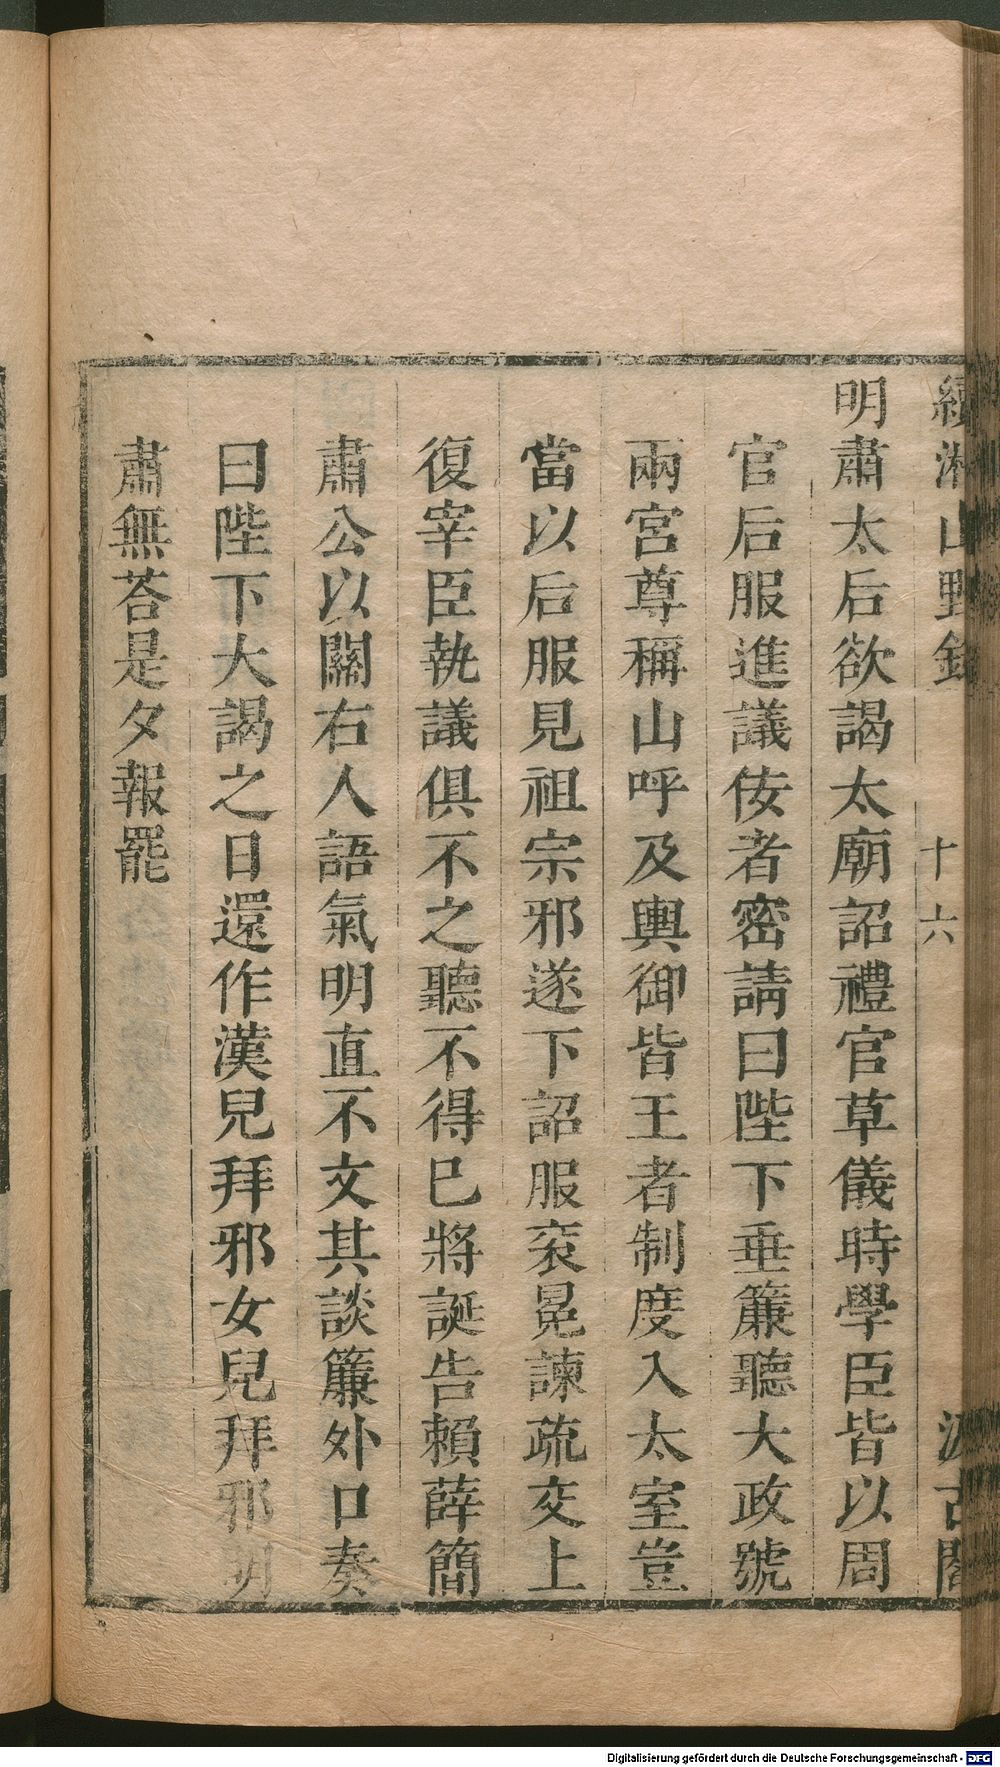 續湘山野錄 十六 汲古閣
明肅太后欲謁太廟詔禮官草儀時學臣皆以周
官后服進議佞者密請曰陛下垂簾聽大政號
兩宮尊稱山呼及輿御皆王者制度入太室豈
當以后服見祖宗邪遂下詔服衮冕諫疏交上
復宰臣執議俱不之聽不得已將誕告賴薛簡
肅公以關右人語氣明直不文其談簾外口奏
曰陛下大謁之日還作漢兒拜邪女兒拜邪明
肅無荅是夕報罷
Digitalisierung gefördert durch die Deutsche Forschungsgemeinschaft - DFG